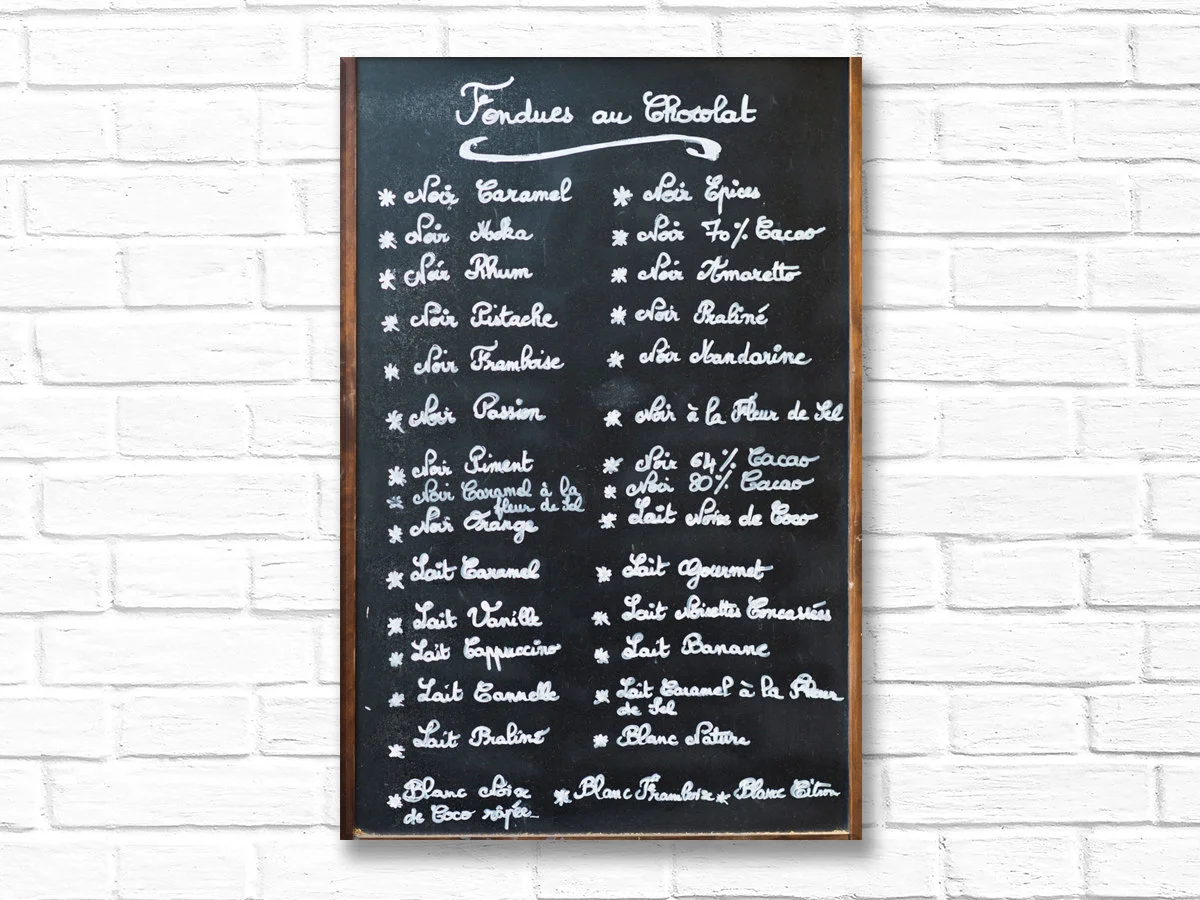 Fondues au Chocolat
* Noir Caramel
* Noir Moka
* Noir Rhum
* Noir Pistache
* Noir Framboise
* Noir Passion
* Noir Piment
* Noir Caramel à la
fleur de Sel
* Noir Orange
* Lait Caramel
* Lait Vanille
* Lait Cappuccino
* Lait Cannelle
* Lait Praliné
* Blanc Noix
de Coco râpée
* Noir Epices
* Noir 70% Cacao
* Noir Amaretto
* Noir Praliné
* Noir Mandarine
* Noir à la Fleur de Sel
* Noir 64% Cacao
* Noir 80% Cacao
* Lait Noix de Coco
* Lait Gourmet
* Lait Noisettes Concassées
* Lait Banane
* Lait Caramel à la Fleur
de Sel
* Blanc Nature
* Blanc Framboise * Blanc Citron